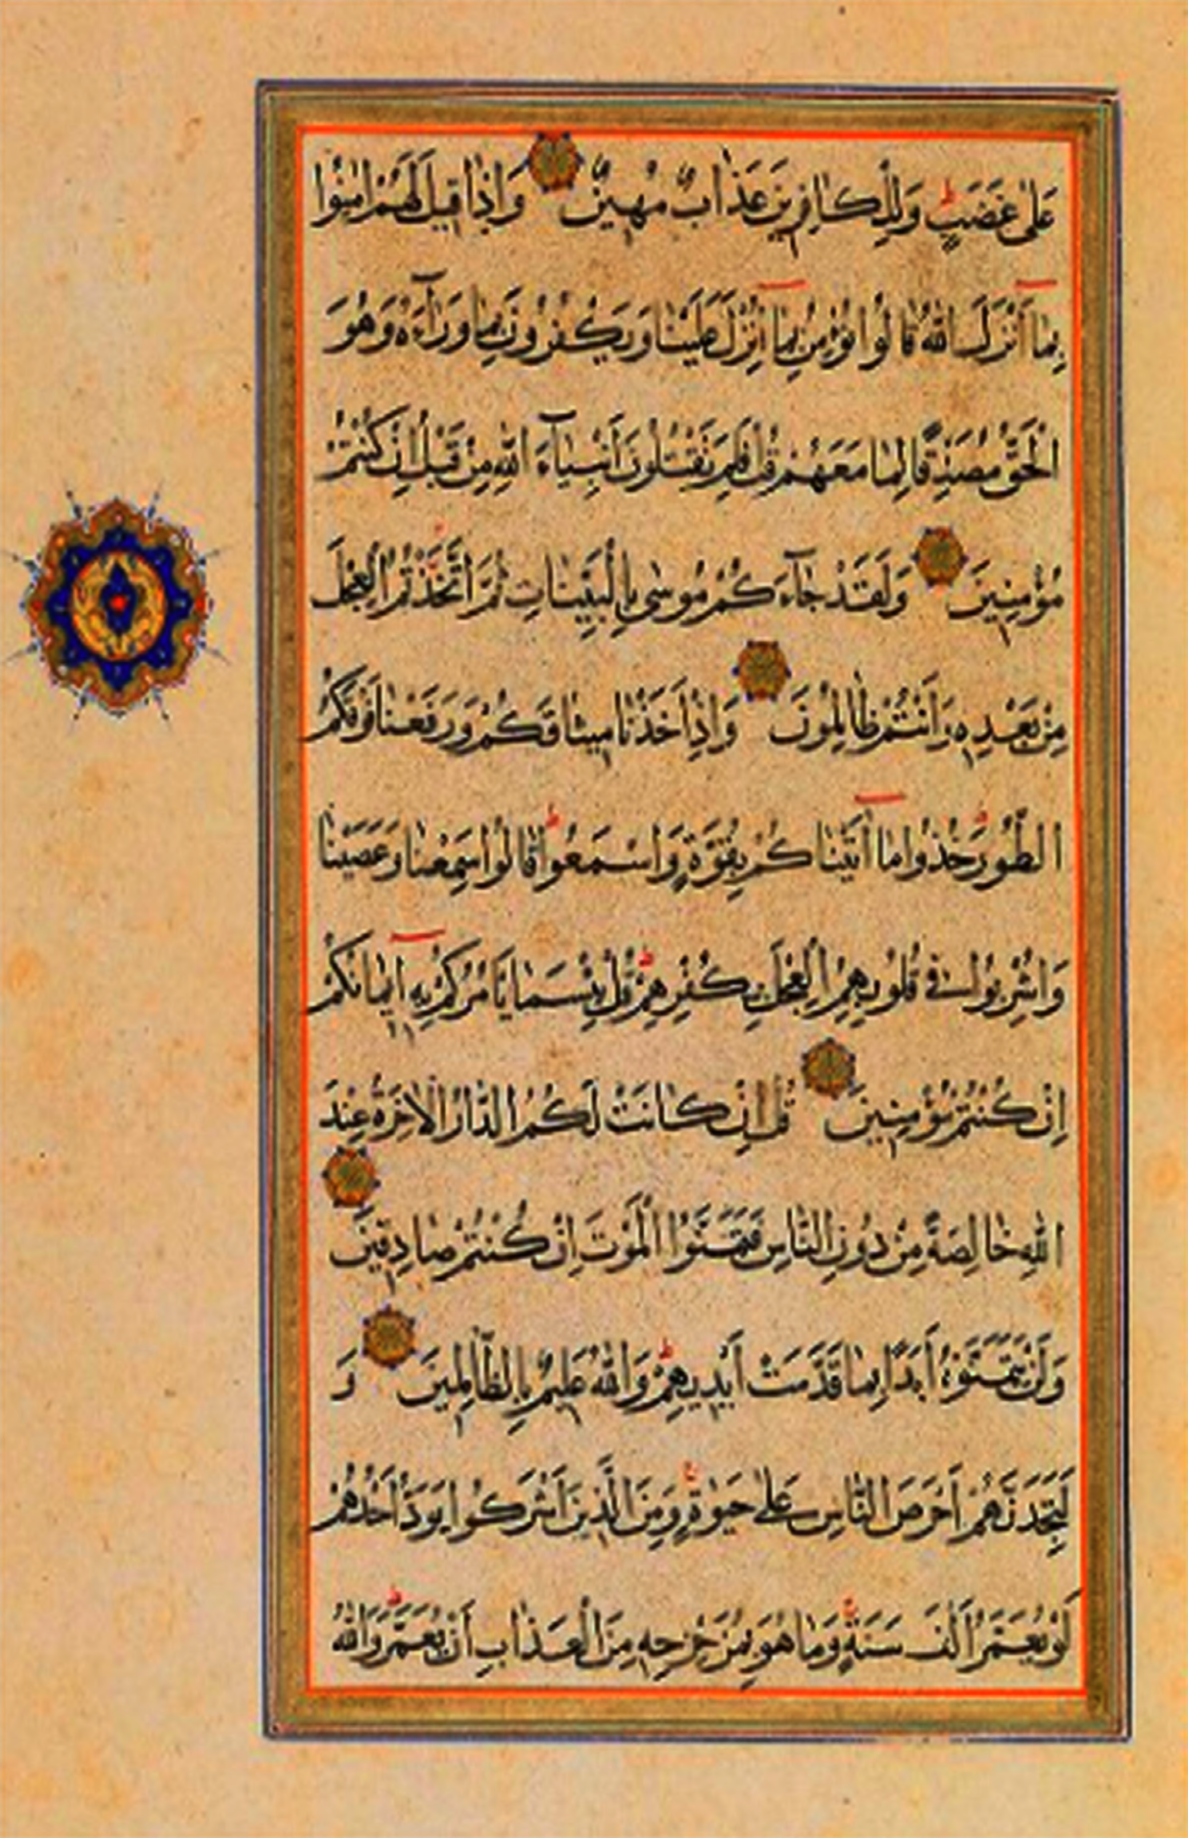 عَلٰى غَضَبٍ وَلِلْكَافِرِينَ عَذَابٌ مُهِينٌ وَاِذَا قِيلَ لَهُمْ اٰمِنُوا
بِمَا اَنْزَلَ اللّٰهُ قَالُوا نُؤْمِنُ بِمَا اُنْزِلَ عَلَيْنَا وَيَكْفُرُونَ بِمَا وَرَاۤءَهُ وَهُوَ
الْحَقُّ مُصَدِّقًا لِمَا مَعَهُمْ قُلْ فَلِمَ تَقْتُلُونَ اَنْبِيَاۤءَ اللّٰهِ مِنْ قَبْلُ اِنْ كُنْتُمْ
مُؤْمِنِينَ وَلَقَدْ جَاۤءَكُمْ مُوسٰى بِالْبَيِّنَاتِ ثُمَّ اتَّخَذْتُمُ الْعِجْلَ
مِنْ بَعْدِهِ وَاَنْتُمْ ظَالِمُونَ وَاِذْ اَخَذْنَا مِيثَاقَكُمْ وَرَفَعْنَا فَوْقَكُمُ
الطُّورَ خُذُوا مَا اٰتَيْنَاكُمْ بِقُوَّةٍ وَاسْمَعُوا قَالُوا سَمِعْنَا وَعَصَيْنَا
وَاُشْرِبُوا فِي قُلُوبِهِمُ الْعِجْلَ بِكُفْرِهِمْ قُلْ بِئْسَمَا يَأْمُرُكُمْ بِهِ اِيمَانُكُمْ
اِنْ كُنْتُمْ مُؤْمِنِينَ قُلْ اِنْ كَانَتْ لَكُمُ الدَّارُ الْاٰخِرَةُ عِنْدَ
اللّٰهِ خَالِصَةً مِنْ دُونِ النَّاسِ فَتَمَنَّوُا الْمَوْتَ اِنْ كُنْتُمْ صَادِقِينَ
وَلَنْ يَتَمَنَّوْهُ اَبَدًا بِمَا قَدَّمَتْ اَيْدِيهِمْ وَاللّٰهُ عَلِيمٌ بِالظَّالِمِينَ وَ
لَتَجِدَنَّهُمْ اَحْرَصَ النَّاسِ عَلٰى حَيٰوةٍ وَمِنَ الَّذِينَ اَشْرَكُوا يَوَدُّ اَحَدُهُمْ
لَوْ يُعَمَّرُ اَلْفَ سَنَةٍ وَمَا هُوَ بِمُزَحْزِحِهِ مِنَ الْعَذَابِ اَنْ يُعَمَّرَ وَاللّٰهُ